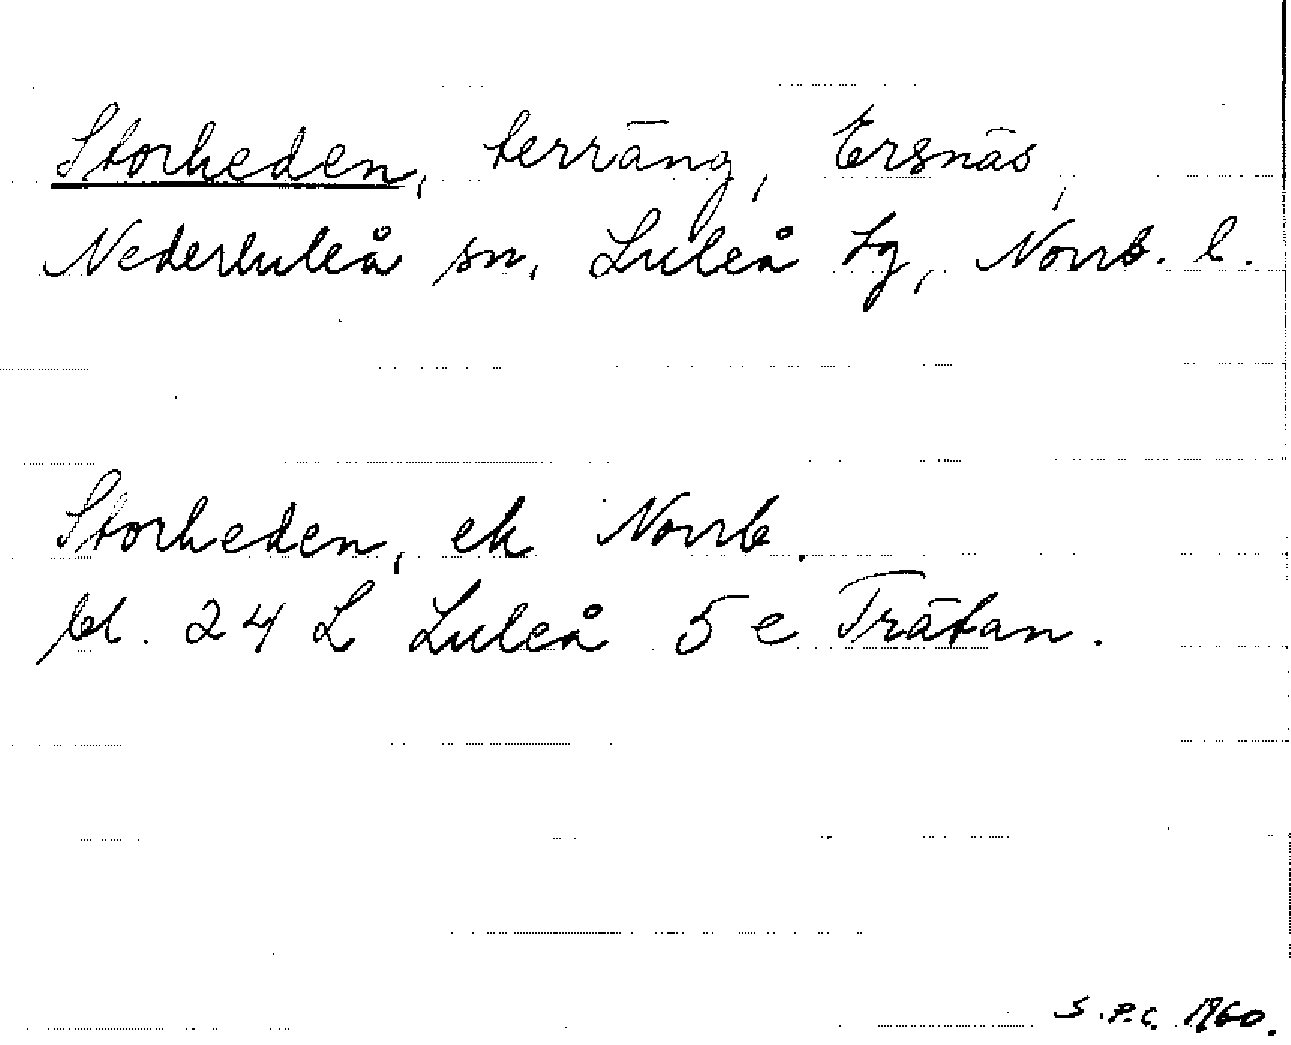 Storheden, terräng, Ersnäs,
Nederluleå sn, Luleå tg, Norrb. l.
Storheden, ek Norrb.
bl. 24 L Luleå 5 e Trätan.
S.P.C. 1960.